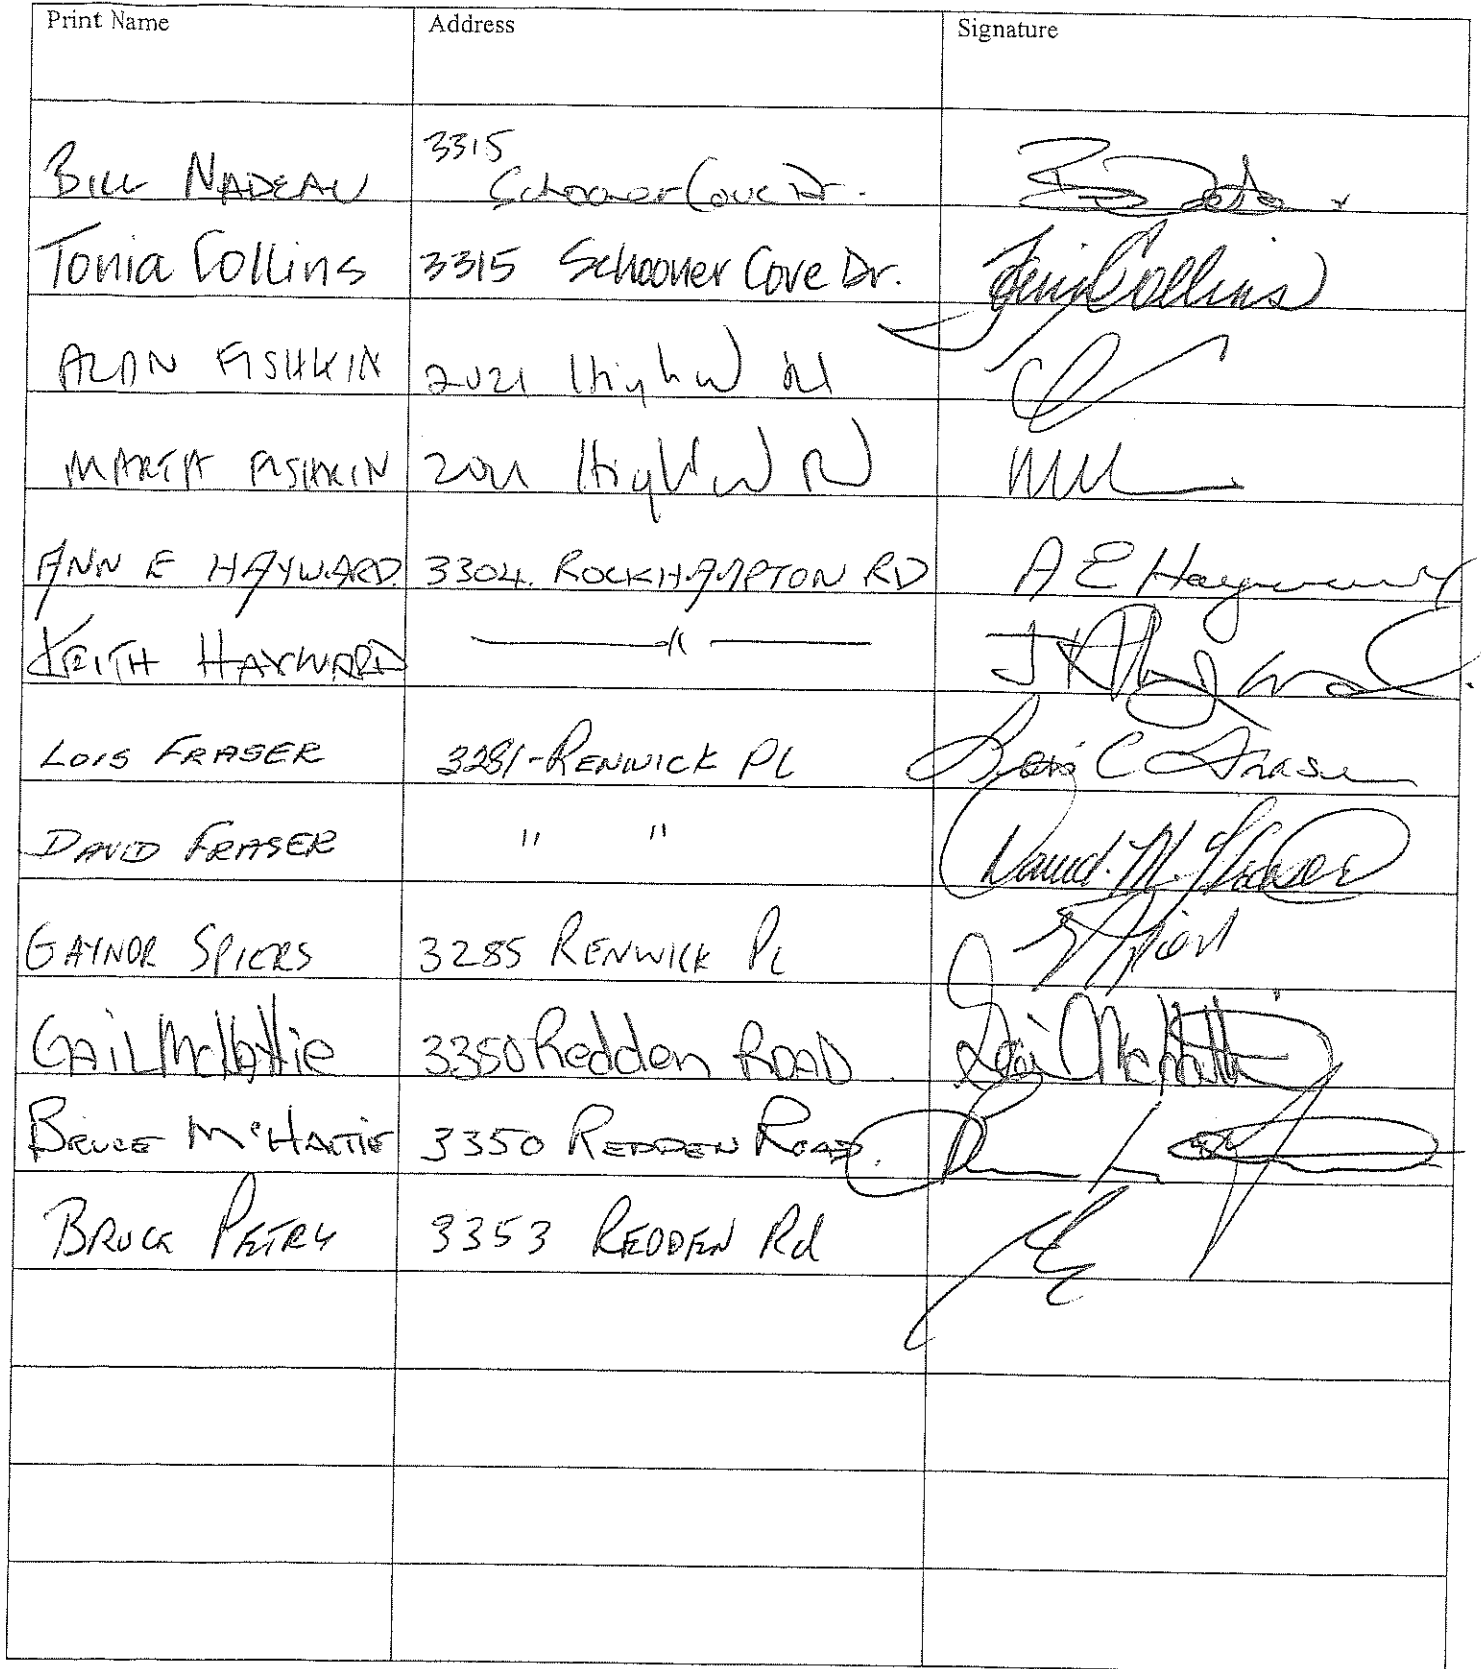 Print Name Address Signature
3315
BILL NADEAU Schooner Cove Dr.
Tonia Collins 3315 Schooner Cove Dr. Collins
ALAN FISHKIN 2021
MARCIA FISHKIN
ANN E HAYWARD. 3304. ROCKHAMPTON RD A E Hayward
KEITH HAYWARD
LOIS FRASER 3281-RENWICK PL Lois C Fraser
DAVID FRASER " " David. M. Fraser
GAYNOR SPIERS 3285 RENWICK PL
GAIL McHattie 3350 Redden ROAD Gail McHattie
BRUCE McHATTIE 3350 REDDEN ROAD.
BRUCE PETRY 3353 REDDEN Rd